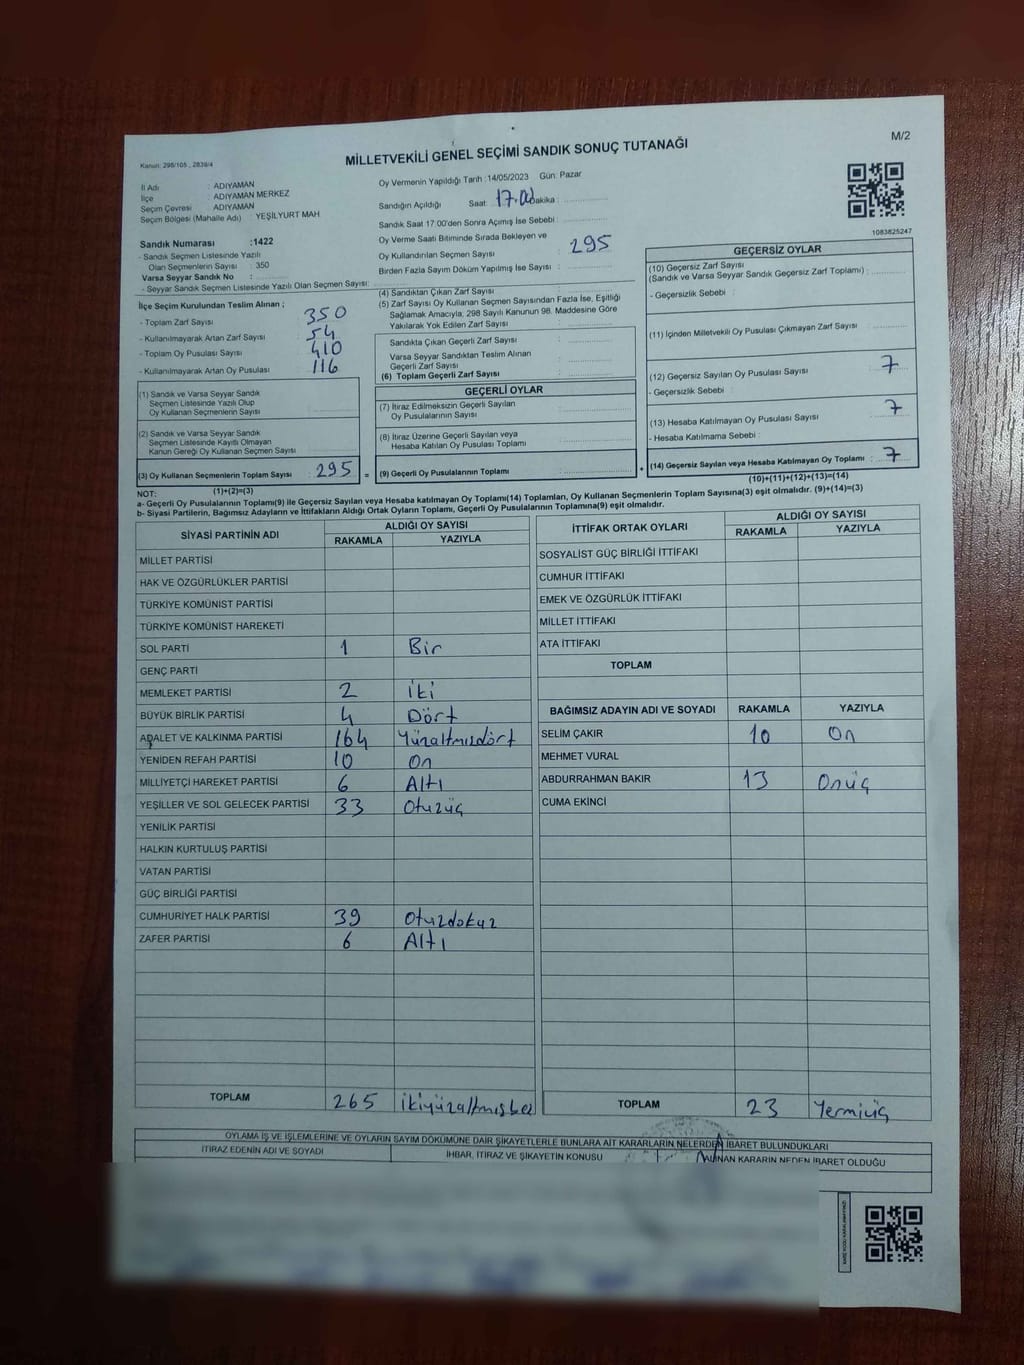 M/2
Kanun: 298/105 , 2839/4
MİLLETVEKİLİ GENEL SEÇİMİ SANDIK SONUÇ TUTANAĞI
İl Adı : ADIYAMAN
İlçe : ADIYAMAN MERKEZ
Seçim Çevresi : ADIYAMAN
Seçim Bölgesi (Mahalle Adı) : YEŞİLYURT MAH
Sandık Numarası :1422
- Sandık Seçmen Listesinde Yazılı
Olan Seçmenlerin Sayısı : 350
Varsa Seyyar Sandık No :
- Seyyar Sandık Seçmen Listesinde Yazılı Olan Seçmen Sayısı:
Oy Vermenin Yapıldığı Tarih :14/05/2023 Gün: Pazar
Sandığın Açıldığı Saat: 17.00 Dakika :
Sandık Saat 17.00'den Sonra Açımış İse Sebebi :
Oy Verme Saati Bitiminde Sırada Bekleyen ve
Oy Kullandırılan Seçmen Sayısı : 295
Birden Fazla Sayım Döküm Yapılmış İse Sayısı :
1083825247
İlçe Seçim Kurulundan Teslim Alınan ;
- Toplam Zarf Sayısı : 350
- Kullanılmayarak Artan Zarf Sayısı : 54
- Toplam Oy Pusulası Sayısı : 410
- Kullanılmayarak Artan Oy Pusulası : 116
(1) Sandık ve Varsa Seyyar Sandık
Seçmen Listesinde Yazılı Olup
Oy Kullanan Seçmenlerin Sayısı :
(2) Sandık ve Varsa Seyyar Sandık
Seçmen Listesinde Kayıtlı Olmayan
Kanun Gereği Oy Kullanan Seçmen Sayısı :
(3) Oy Kullanan Seçmenlerin Toplam Sayısı : 295 =
(1)+(2)=(3)
(4) Sandıktan Çıkan Zarf Sayısı :
(5) Zarf Sayısı Oy Kullanan Seçmen Sayısından Fazla İse, Eşitliği
Sağlamak Amacıyla, 298 Sayılı Kanunun 98. Maddesine Göre
Yakılarak Yok Edilen Zarf Sayısı :
Sandıkta Çıkan Geçerli Zarf Sayısı :
Varsa Seyyar Sandıktan Teslim Alınan
Geçerli Zarf Sayısı :
(6) Toplam Geçerli Zarf Sayısı :
GEÇERLİ OYLAR
(7) İtiraz Edilmeksizin Geçerli Sayılan
Oy Pusulalarının Sayısı :
(8) İtiraz Üzerine Geçerli Sayılan veya
Hesaba Katılan Oy Pusulası Toplamı :
(9) Geçerli Oy Pusulalarının Toplamı : +
GEÇERSİZ OYLAR
(10) Geçersiz Zarf Sayısı
(Sandık ve Varsa Seyyar Sandık Geçersiz Zarf Toplamı) :
- Geçersizlik Sebebi :
(11) İçinden Milletvekili Oy Pusulası Çıkmayan Zarf Sayısı :
(12) Geçersiz Sayılan Oy Pusulası Sayısı : 7
- Geçersizlik Sebebi :
(13) Hesaba Katılmayan Oy Pusulası Sayısı : 7
- Hesaba Katılmama Sebebi :
(14) Geçersiz Sayılan veya Hesaba Katılmayan Oy Toplamı : 7
(10)+(11)+(12)+(13)=(14)
NOT:
a- Geçerli Oy Pusulalarının Toplamı(9) ile Geçersiz Sayılan veya Hesaba katılmayan Oy Toplamı(14) Toplamları, Oy Kullanan Seçmenlerin Toplam Sayısına(3) eşit olmalıdır. (9)+(14)=(3)
b- Siyasi Partilerin, Bağımsız Adayların ve İttifakların Aldığı Ortak Oyların Toplamı, Geçerli Oy Pusulalarının Toplamına(9) eşit olmalıdır.
SİYASİ PARTİNİN ADI ALDIĞI OY SAYISI
RAKAMLA YAZIYLA
MİLLET PARTİSİ
HAK VE ÖZGÜRLÜKLER PARTİSİ
TÜRKİYE KOMÜNİST PARTİSİ
TÜRKİYE KOMÜNİST HAREKETİ
SOL PARTİ 1 Bir
GENÇ PARTİ
MEMLEKET PARTİSİ 2 İki
BÜYÜK BİRLİK PARTİSİ 4 Dört
ADALET VE KALKINMA PARTİSİ 164 Yüzaltmışdört
YENİDEN REFAH PARTİSİ 10 On
MİLLİYETÇİ HAREKET PARTİSİ 6 Altı
YEŞİLLER VE SOL GELECEK PARTİSİ 33 Otuzüç
YENİLİK PARTİSİ
HALKIN KURTULUŞ PARTİSİ
VATAN PARTİSİ
GÜÇ BİRLİĞİ PARTİSİ
CUMHURİYET HALK PARTİSİ 39 Otuzdokuz
ZAFER PARTİSİ 6 Altı
TOPLAM 265 İkiyüzaltmışbeş
İTTİFAK ORTAK OYLARI ALDIĞI OY SAYISI
RAKAMLA YAZIYLA
SOSYALİST GÜÇ BİRLİĞİ İTTİFAKI
CUMHUR İTTİFAKI
EMEK VE ÖZGÜRLÜK İTTİFAKI
MİLLET İTTİFAKI
ATA İTTİFAKI
TOPLAM
BAĞIMSIZ ADAYIN ADI VE SOYADI RAKAMLA YAZIYLA
SELİM ÇAKIR 10 On
MEHMET VURAL
ABDURRAHMAN BAKIR 13 Onüç
CUMA EKİNCİ
TOPLAM 23 Yermiüç
OYLAMA İŞ VE İŞLEMLERİNE VE OYLARIN SAYIM DÖKÜMÜNE DAİR ŞİKAYETLERLE BUNLARA AİT KARARLARIN NELERDEN İBARET BULUNDUKLARI
İTİRAZ EDENİN ADI VE SOYADI İHBAR, İTİRAZ VE ŞİKAYETİN KONUSU ALINAN KARARIN NEDEN İBARET OLDUĞU